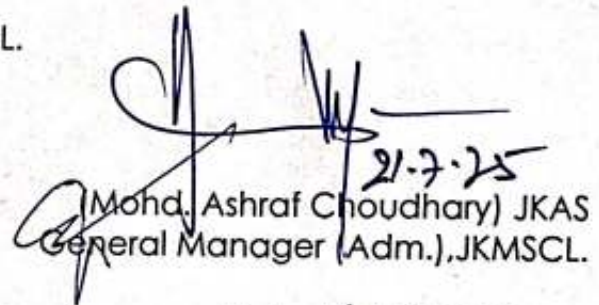 L.
21.7.25
(Mohd. Ashraf Choudhary) JKAS
General Manager (Adm.),JKMSCL.